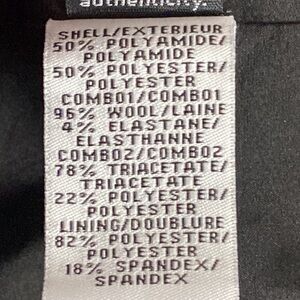 authenticity.
SHELL/EXTERIEUR
50% POLYAMIDE/
POLYAMIDE
50% POLYESTER/
POLYESTER
COMBO1/COMBO1
96% WOOL/LAINE
4% ELASTANE/
ELASTHANNE
COMBO2/COMBO2
78% TRIACETATE/
TRIACETATE
22% POLYESTER/
POLYESTER
LINING/DOUBLURE
82% POLYESTER/
POLYESTER
18% SPANDEX/
SPANDEX